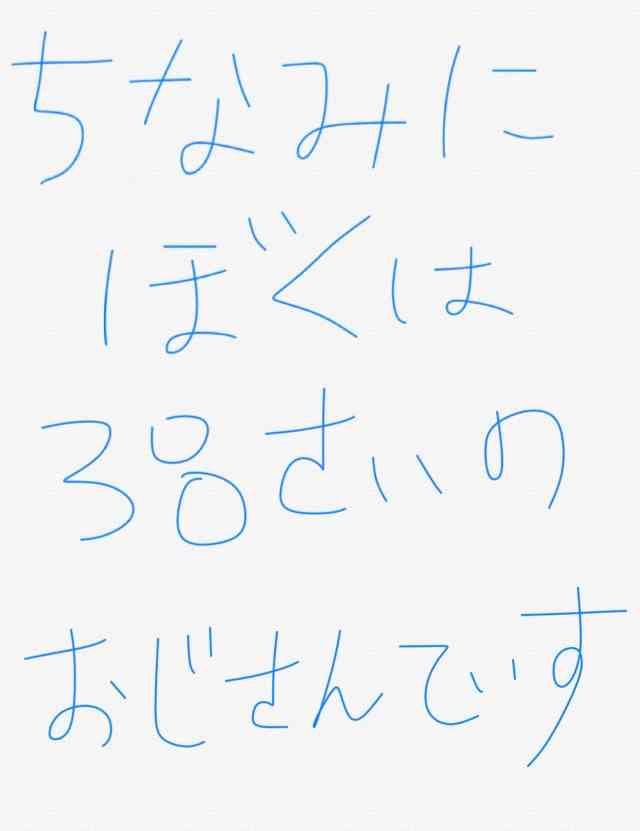 ちなみに
ぼくは
38さいの
おじさんです